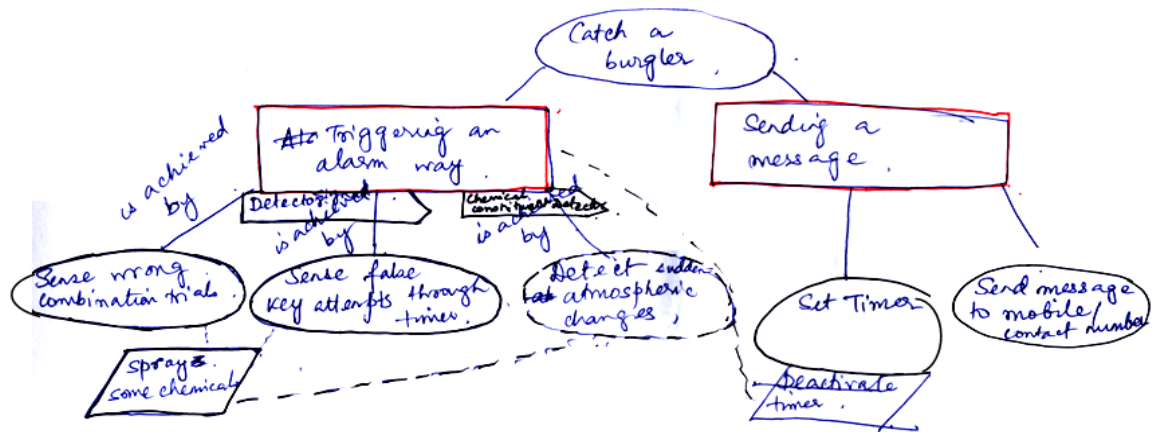 Catch a
burgler
Triggering an
alarm way
Sending a
message.
is achieved
by
Detector
is achieved
by
Chemical
constituent detector
is achieved
by
Sense wrong
combination trials.
Sense false
key attempts through
timer.
Detect sudden
atmospheric
changes,
Set Timer
Send message
to mobile/
contact number
sprays.
some chemicals
Deactivate
timer.